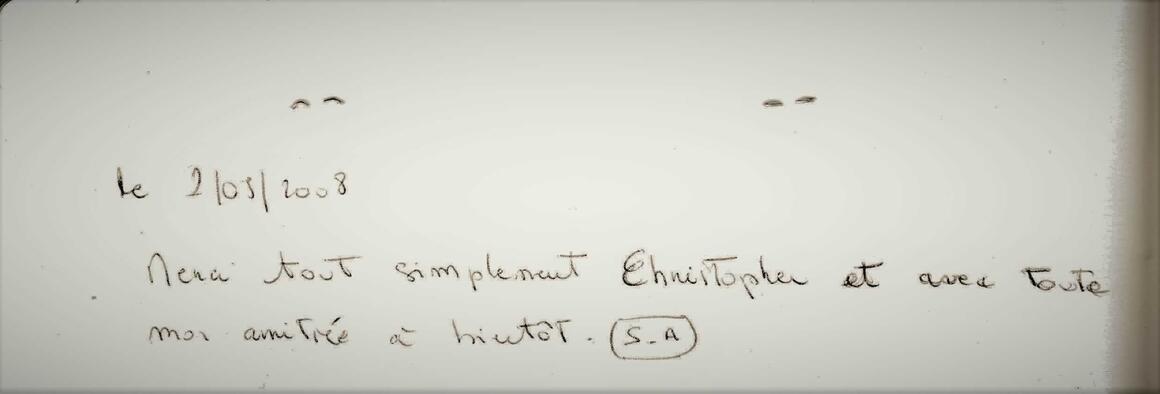 le 2/03/2008
Merci tout simplement Christopher et avec toute
mon amitiée à bientôt. S-A